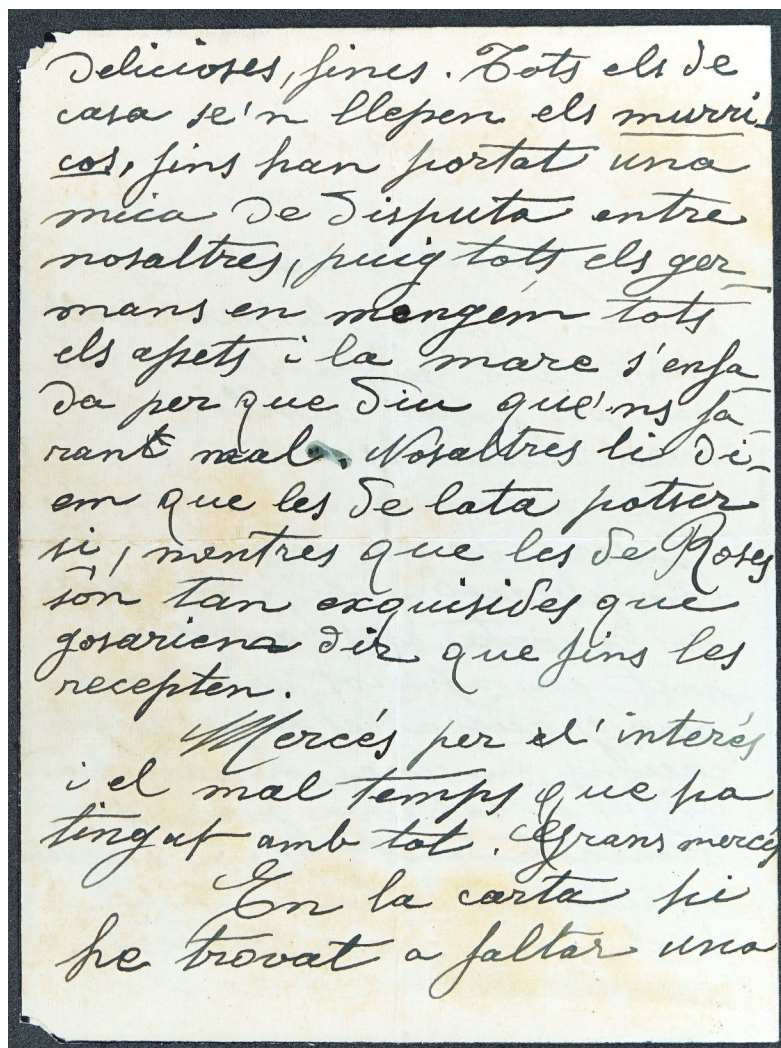 Delicioses, fines. Tots els de
casa se'n llepen els murri-
cos, fins han portat una
mica de disputa entre
nosaltres, puig tots els ger-
mans en mengém tots
els apets i la mare s'enfa
da per que diu que'ns fa-
rant mal. Nosaltres li di-
em que les de lata potser
si, mentres que les de Roses
són tan exquisides que
gosariena dir que fins les
recepten.
Mercés per el' interés
i el mal temps que ha
tingut amb tot. Grans mercés
En la carta hi
he trovat a faltar una